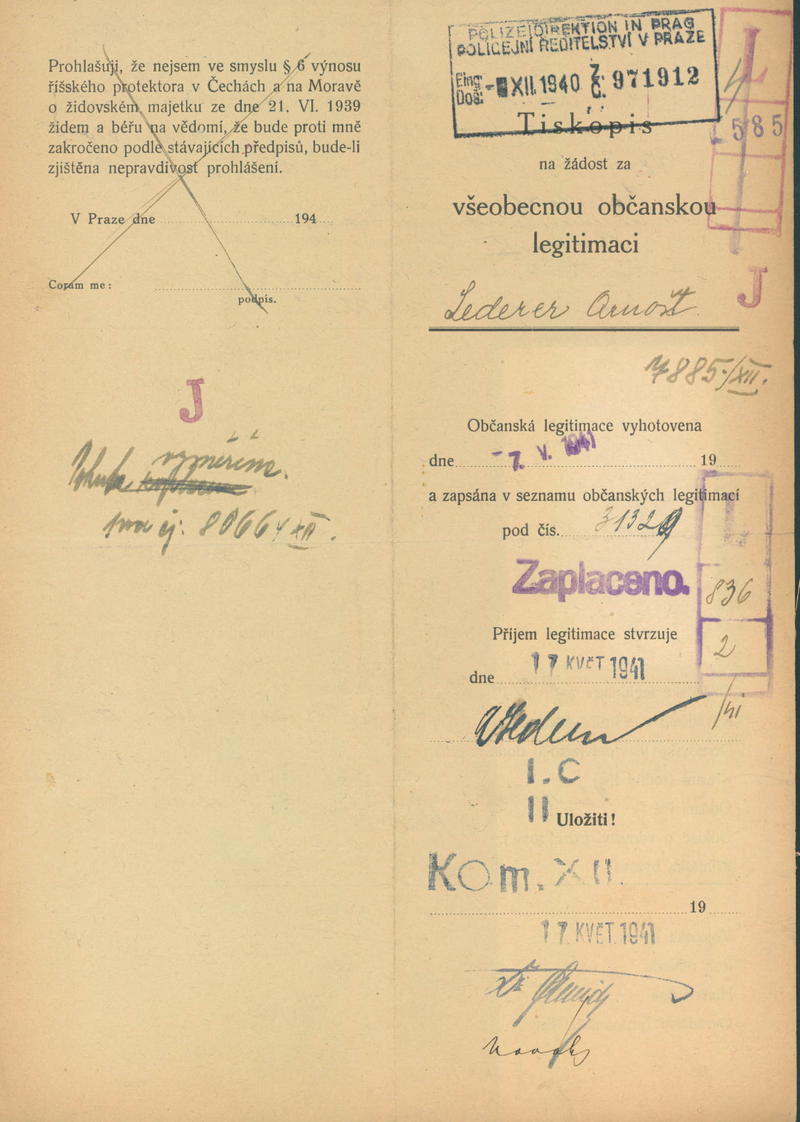 Prohlašuji, že nejsem ve smyslu § 6 výnosu
říšského protektora v Čechách a na Moravě
o židovském majetku ze dne 21. VI. 1939
židem a béřu na vědomí, že bude proti mně
zakročeno podle stávajících předpisů, bude-li
zjištěna nepravdivost prohlášení.
V Praze dne 194
Coram me:
podpis.
J
vyměřím.
čj. 80664 XII.
POLIZEIDIREKTION IN PRAG
POLICEJNÍ ŘEDITELSTVÍ V PRAZE
Eing.
Doš.
XII. 1940 Z. Č. 971912
4
585
Tiskopis
na žádost za
všeobecnou občanskou
legitimaci
J
Lederer Arnošt
7885/XII.
Občanská legitimace vyhotovena
dne -7. V. 1941 19
a zapsána v seznamu občanských legitimací
pod čís. 31329
Zaplaceno.
836
Příjem legitimace stvrzuje
2
dne 17 KVĚT 1941
I.C
II Uložiti!
Kom. XII.
19
17. KVĚT. 1941